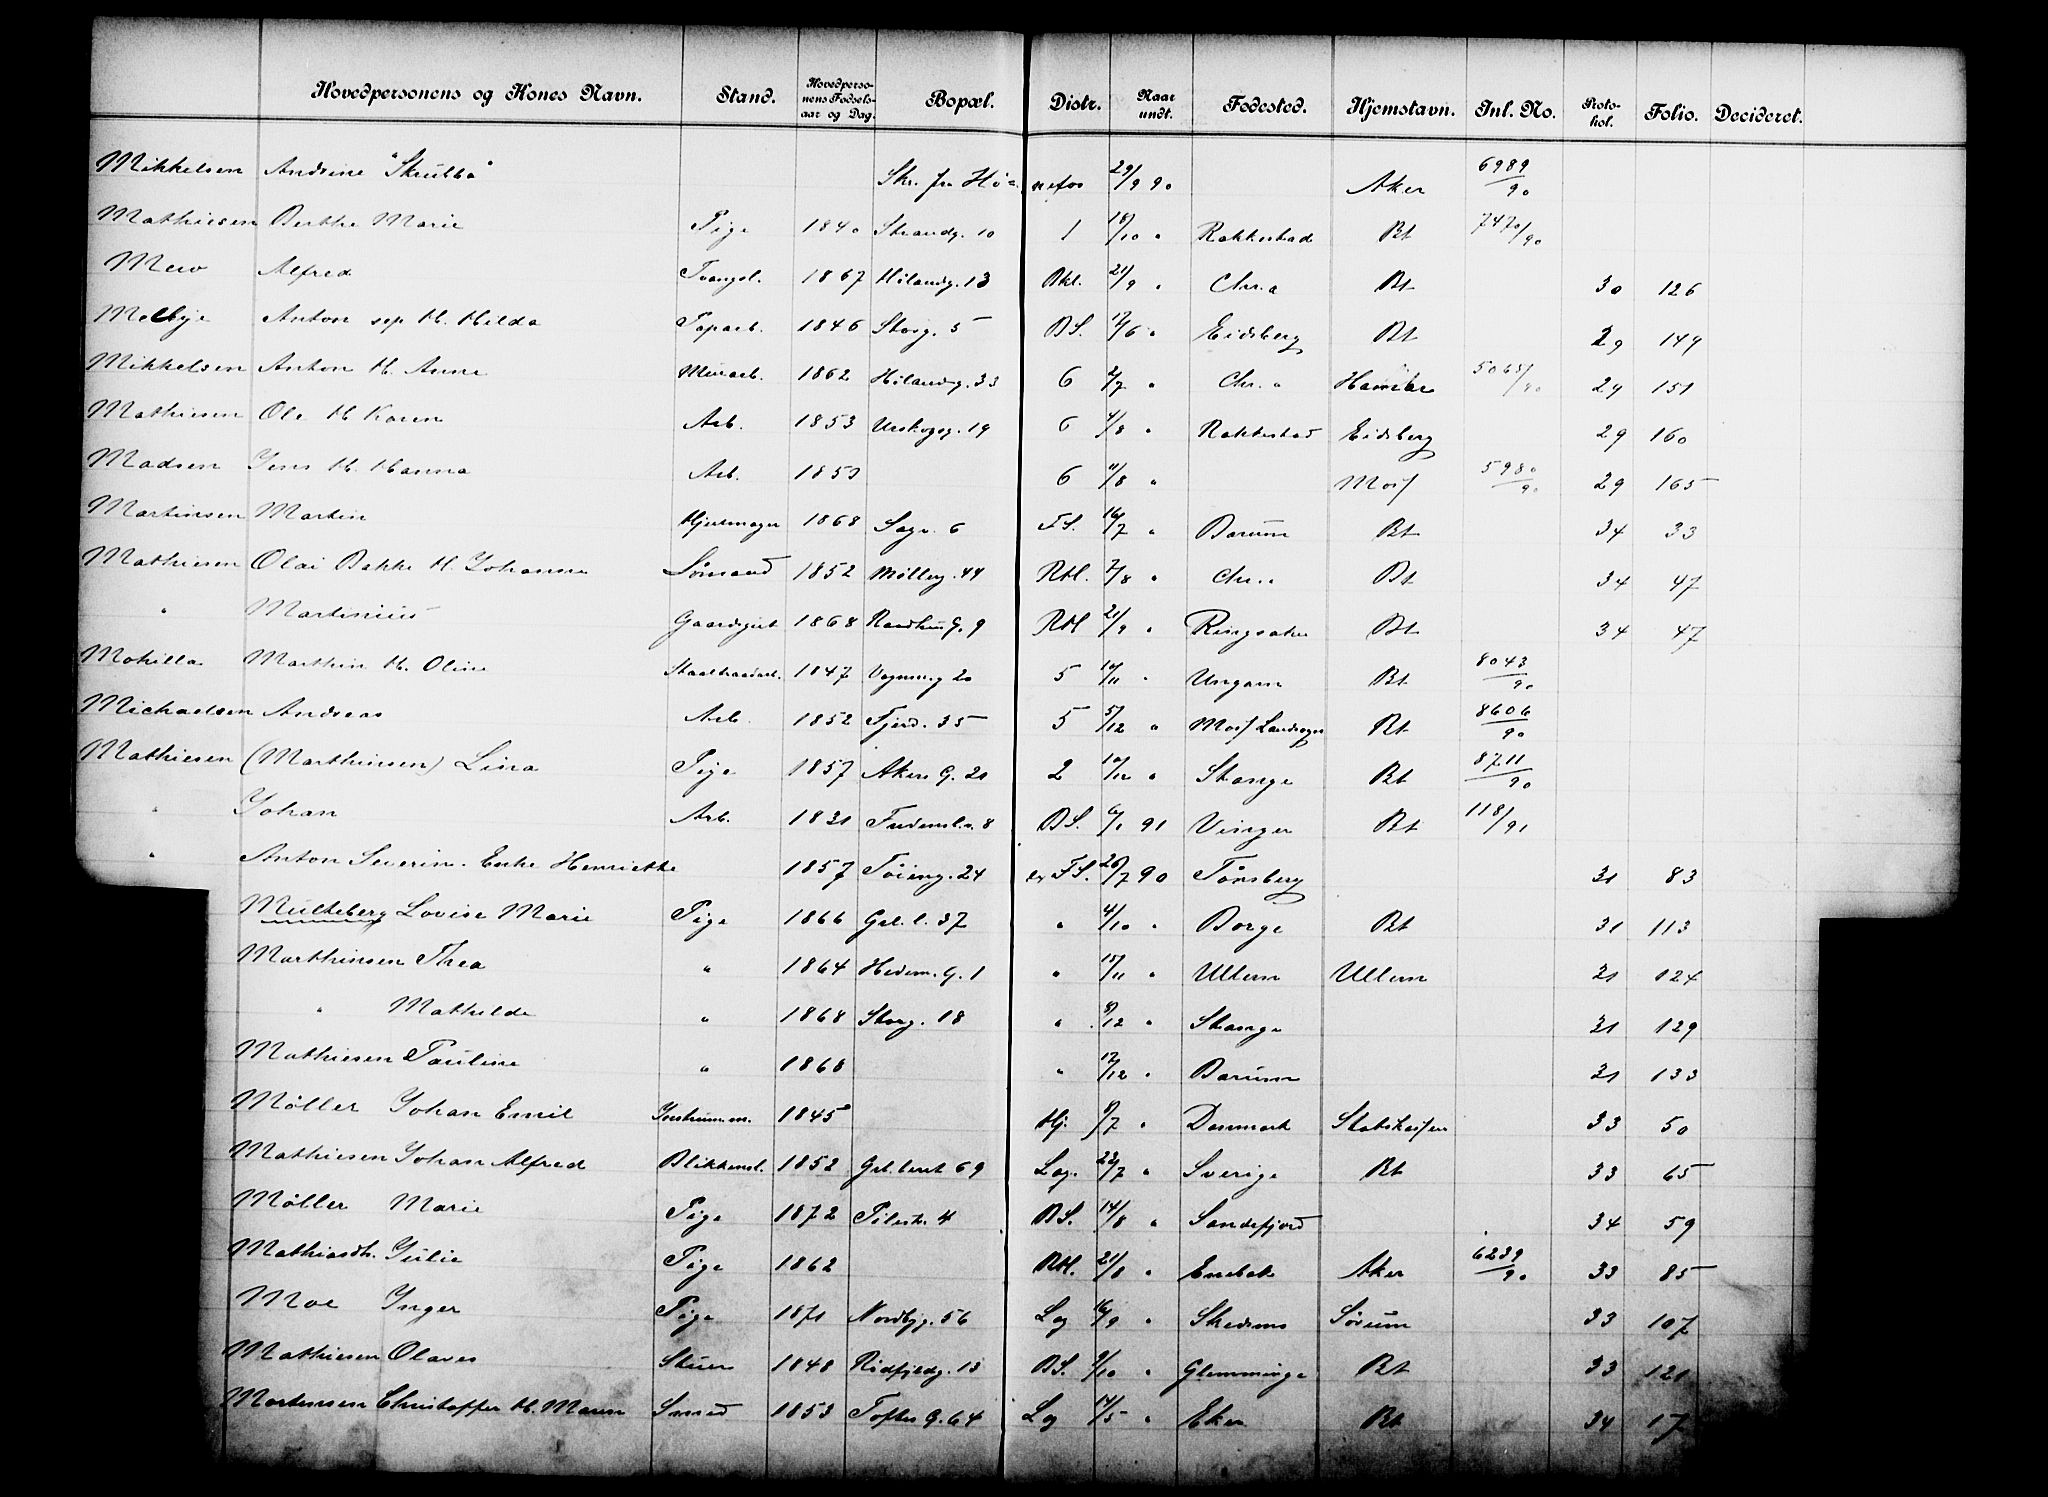 Hovedpersonens og Kones Navn. Stand. Hovedperso-nens Fødsels-aar og Dag. Bopæl. Distr. Naar undt. Fødested. Hjemstavn. Inl. No. Proto-kol. Folio. Decideret.
Mikkelsen Andrine "Skrubba" Skr. fra Hø=nefos 29/9 90 Aker 6989/90
Mathiesen Berthe Marie Pige 1840 Strandg. 10 1 18/10 " Rakkestad Bt 7470/90
Alfred Tvangsl. 1867 Hølandg. 13 Bkl. 21/9 " Chr.a Bt 30 126
Melbye Anton sep H. Hilda Paparb. 1846 Storg. 5 BS. 17/6 " Eidsberg Bt 29 149
Mikkelsen Anton H. Anna Murarb. 1862 Hølandg. 33 6 2/7 " Chr. a 5065/90 29 151
Mathiesen Ole H Karen Arb. 1853 Urskogg. 19 6 4/8 " Rakkestad Eidsberg 29 160
Madsen Jens H. Hanna Arb. 1853 6 11/8 " Moss 5980/90 29 165
Martinsen Martin Hjulmager 1868 Sagv. 6 FS. 16/7 " Bærum Bt 34 33
Mathiesen Olai Bakke H. Johanne Sømand 1852 Møllerg. 44 Rtl. 7/8 " Chr.a Bt 34 47
" Martinius Gaardsgut 1868 G. 9 Rtl 21/9 " Ringsaker Bt 34 47
Mokilla Marthin H. Oline Staaltraadarb. 1847 Vognm.g 20 5 10/11 " Ungarn Bt 8043/90
Michaelsen Andreas Arb. 1852 Fjerd. 35 5 5/12 " Moss Landsogn Bt 8606/90
Mathiesen (Marthinsen) Lina Pige 1857 Akers G. 20 2 10/12 " Stange Bt 8711/90
" Johan Arb. 1831 8 BS. 6/1 91 Vinger Bt 118/91
" Anton Severin. Enke Henriette 1857 Tøieng. 24 FS. 26/7 90 Tønsberg 31 83
Multeberg Lovise Marie Pige 1866 Grl. l. 37 " 4/10 " Borge Bt 31 113
Marthinsen Thea " 1864 Hedem. G. 1 " 15/11 " Ullern Ullern 31 124
" Mathilde " 1868 Storg. 18 " 8/12 " Stange 31 129
Mathiesen Pauline " 1868 " 12/12 " Bærum 31 133
Møller Johan Emil Instrumm. 1845 Hj. 9/7 " Danmark Statskassen 33 50
Mathiesen Johan Alfred Blikkensl. 1852 Grl. leret 69 Lag. 23/7 " Sverige Bt 33 65
Møller Marie Pige 1872 Pilestr. 4 BS. 14/8 " Sandefjord 34 59
Mathiasdtr. Julie Pige 1862 Rtl. 21/8 " Enebak Aker 6239/90 33 85
Moe Inger Pige 1871 Nordbyg. 56 Lag 16/9 " Skedsmo Sørum 33 107
Mathiesen Olaves Stuer 1848 Rødfyldg. 13 BS. 9/10 " Glemminge Bt 33 121
Martinsen Christoffer H. Maren Smed 1853 Toftes G. 64 Lag 14/5 " Eker Bt 34 17